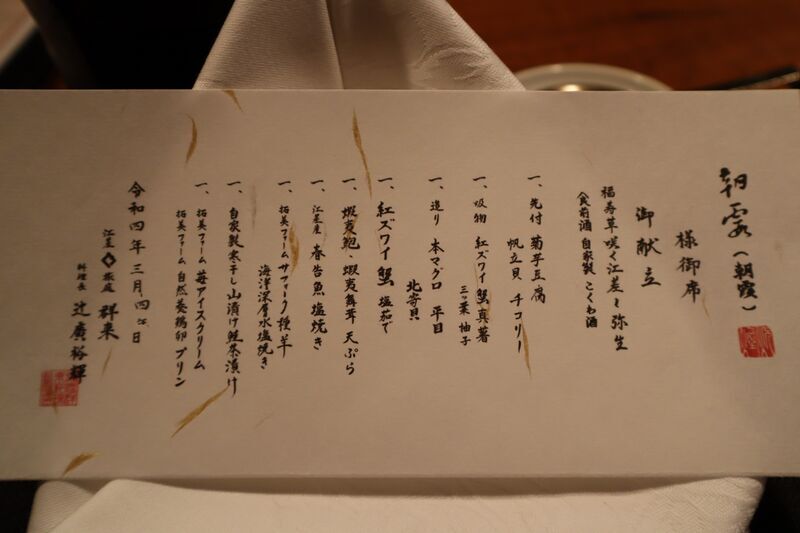 朝霞(朝霞)
様御席
御献立
福寿草咲く江差と弥生
(食前酒 自家製 こくわ酒
一、先付 菊芋豆腐
帆立貝 チコリー
一、吸物 紅ズワイ蟹真薯
三ッ葉 柚子
一、造り 本マグロ 平目
北寄貝
一、紅ズワイ蟹 塩茹で
一、蝦夷鮑、蝦夷舞茸 天ぷら
一、江差産 春告魚塩焼き
一、拓美ファームサフォーク種羊
海洋深層水塩焼き
一、自家製寒干し山漬け鮭茶漬け
一、拓美ファーム 苺アイスクリーム
一、拓美ファーム 自然養鶏卵プリン
令和四年三月四日
江差 旅庭 群来
料理長 辻廣裕輝